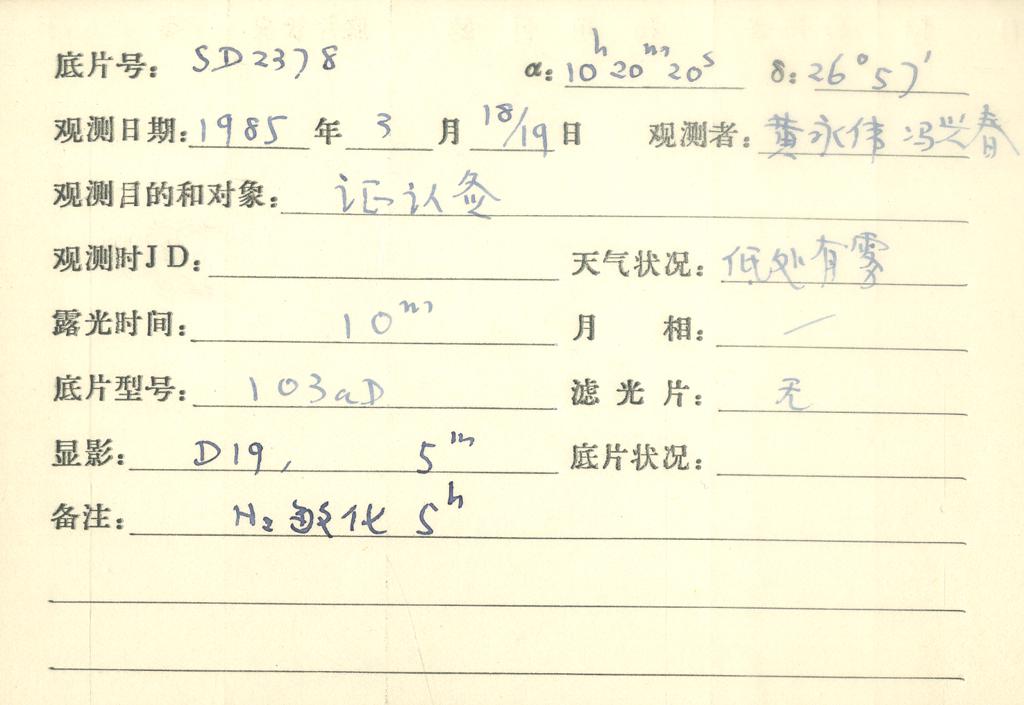 底片号: SD2378 α: 10h 20m 20s δ: 26° 57′
观测日期: 1985 年 3 月 18/19 日 观测者: 黄永伟 冯兴春
观测目的和对象: 证认
观测时JD: 天气状况: 低处有雾
露光时间: 10m 月 相: —
底片型号: 103aD 滤光片: 无
显影: D19, 5m 底片状况:
备注: H₂ 敏化 5h